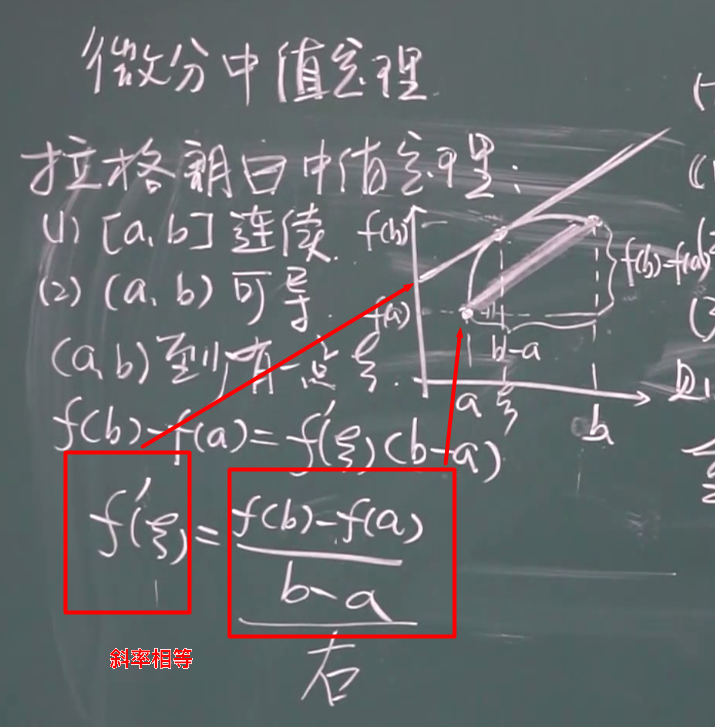 微分中值定理
拉格朗日中值定理:
(1) [a,b] 连续.
(2) (a,b) 可导.
(a,b) 到少有一点ξ.
f(b)-f(a)=f'(ξ)(b-a)
f'(ξ)=
f(b)-f(a)
b-a
右
斜率相等
f(b)
f(a)
f(b)-f(a)
b-a
a ξ
b